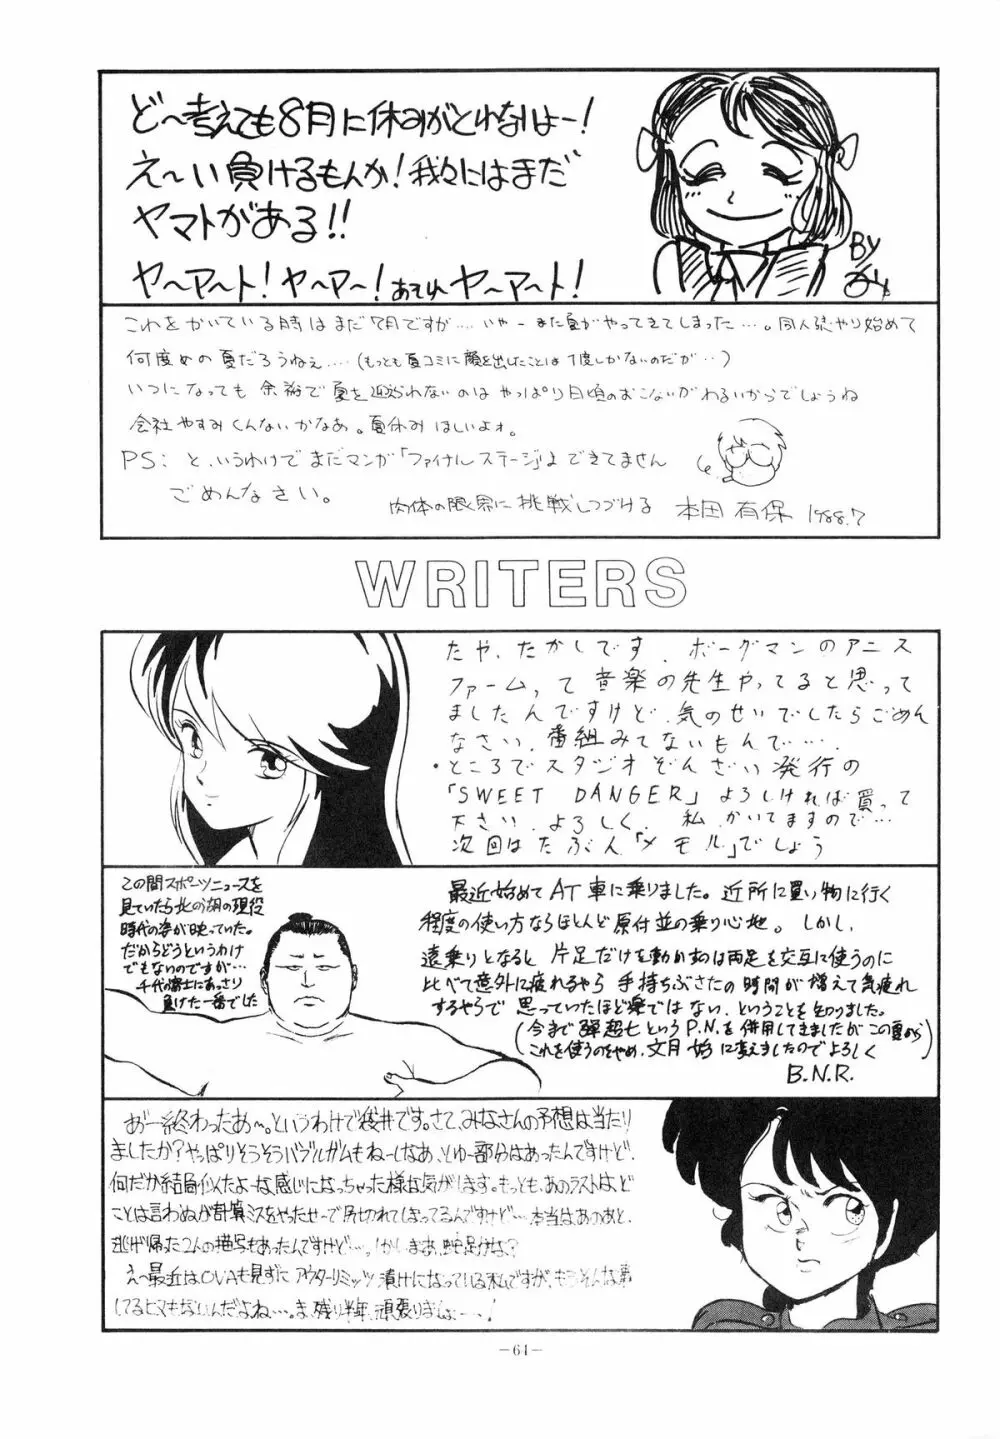 ど〜考えても8月に休みがとれないよー!
え〜い負けるもんか!我々にはまだ
ヤマトがある!!
ヤ〜ア〜ト!ヤ〜ア〜! ヤ〜ア〜ト!
BY
これをかいている時はまだ7月ですが‥‥いやーまた夏がやってきてしまった‥‥。同人誌やり始めて
何度めの夏だろうねえ‥‥(もっとも夏コミに顔を出したことは1度しかないのだが‥)
いつになっても余裕で夏を迎えられないのはやっぱり日頃のおこないがわるいからでしょうね
会社やすみくんないかなあ。夏休みほしいよォ。
PS:と、いうわけでまだマンガ「ファイナルステージ」はできてません
ごめんなさい。
肉体の限界に挑戦しつづける 本田有保 1988.7
WRITERS
たや、たかしです。ボーグマンのアニス
ファームって音楽の先生やってると思って
ましたんですけど、気のせいでしたらごめん
なさい、番組みてないもんで‥‥.
・ところでスタジオぞんざい発行の
「SWEET DANGER」よろしければ買って
下さい、よろしく、私、かいてますので‥‥
次回はたぶん「メモル」でしょう
この間スポーツニュースを
見ていたら北の湖の現役
時代の姿が映っていた。
だからどうというわけ
でもないのですが‥‥
千代の富士にあっさり
負けた一番でした
最近始めてAT車に乗りました。近所に買い物に行く
程度の使い方ならほとんど原付並の乗り心地。しかし、
遠乗りとなると片足だけを動かすのは両足を交互に使うのに
比べて意外に疲れるやら手持ちぶさたの時間が増えて気疲れ
するやらで思っていたほど楽ではない、ということを知りました。
(今まで弾超七というP.N.を併用してきましたがこの夏から
これを使うのをやめ、文月始に変えましたのでよろしく)
B.N.R.
あ゛ー終わったあ〜。というわけで袋井です。さて、みなさんの予想は当たり
ましたか?やっぱりそうそうバブルガムもねーしなあ、とゆー部分はあったんですけど、
何だか結局似たよーな感じになっちゃった様な気がします。もっとも、あのラストは、ど
ことは言わぬが計算ミスをやったせーで尻切れてしまってるんですけど‥‥本当は、あのあと、
逃げ帰った2人の描写もあったんですけど‥‥。しかしまあ、蛇足かな?
え〜最近はOVAも見ずにアウターリミッツ漬けになっている私ですが、もうそんな事
してるヒマもないんだよね‥‥ま、残り半年、頑張りましょ――!
―64―